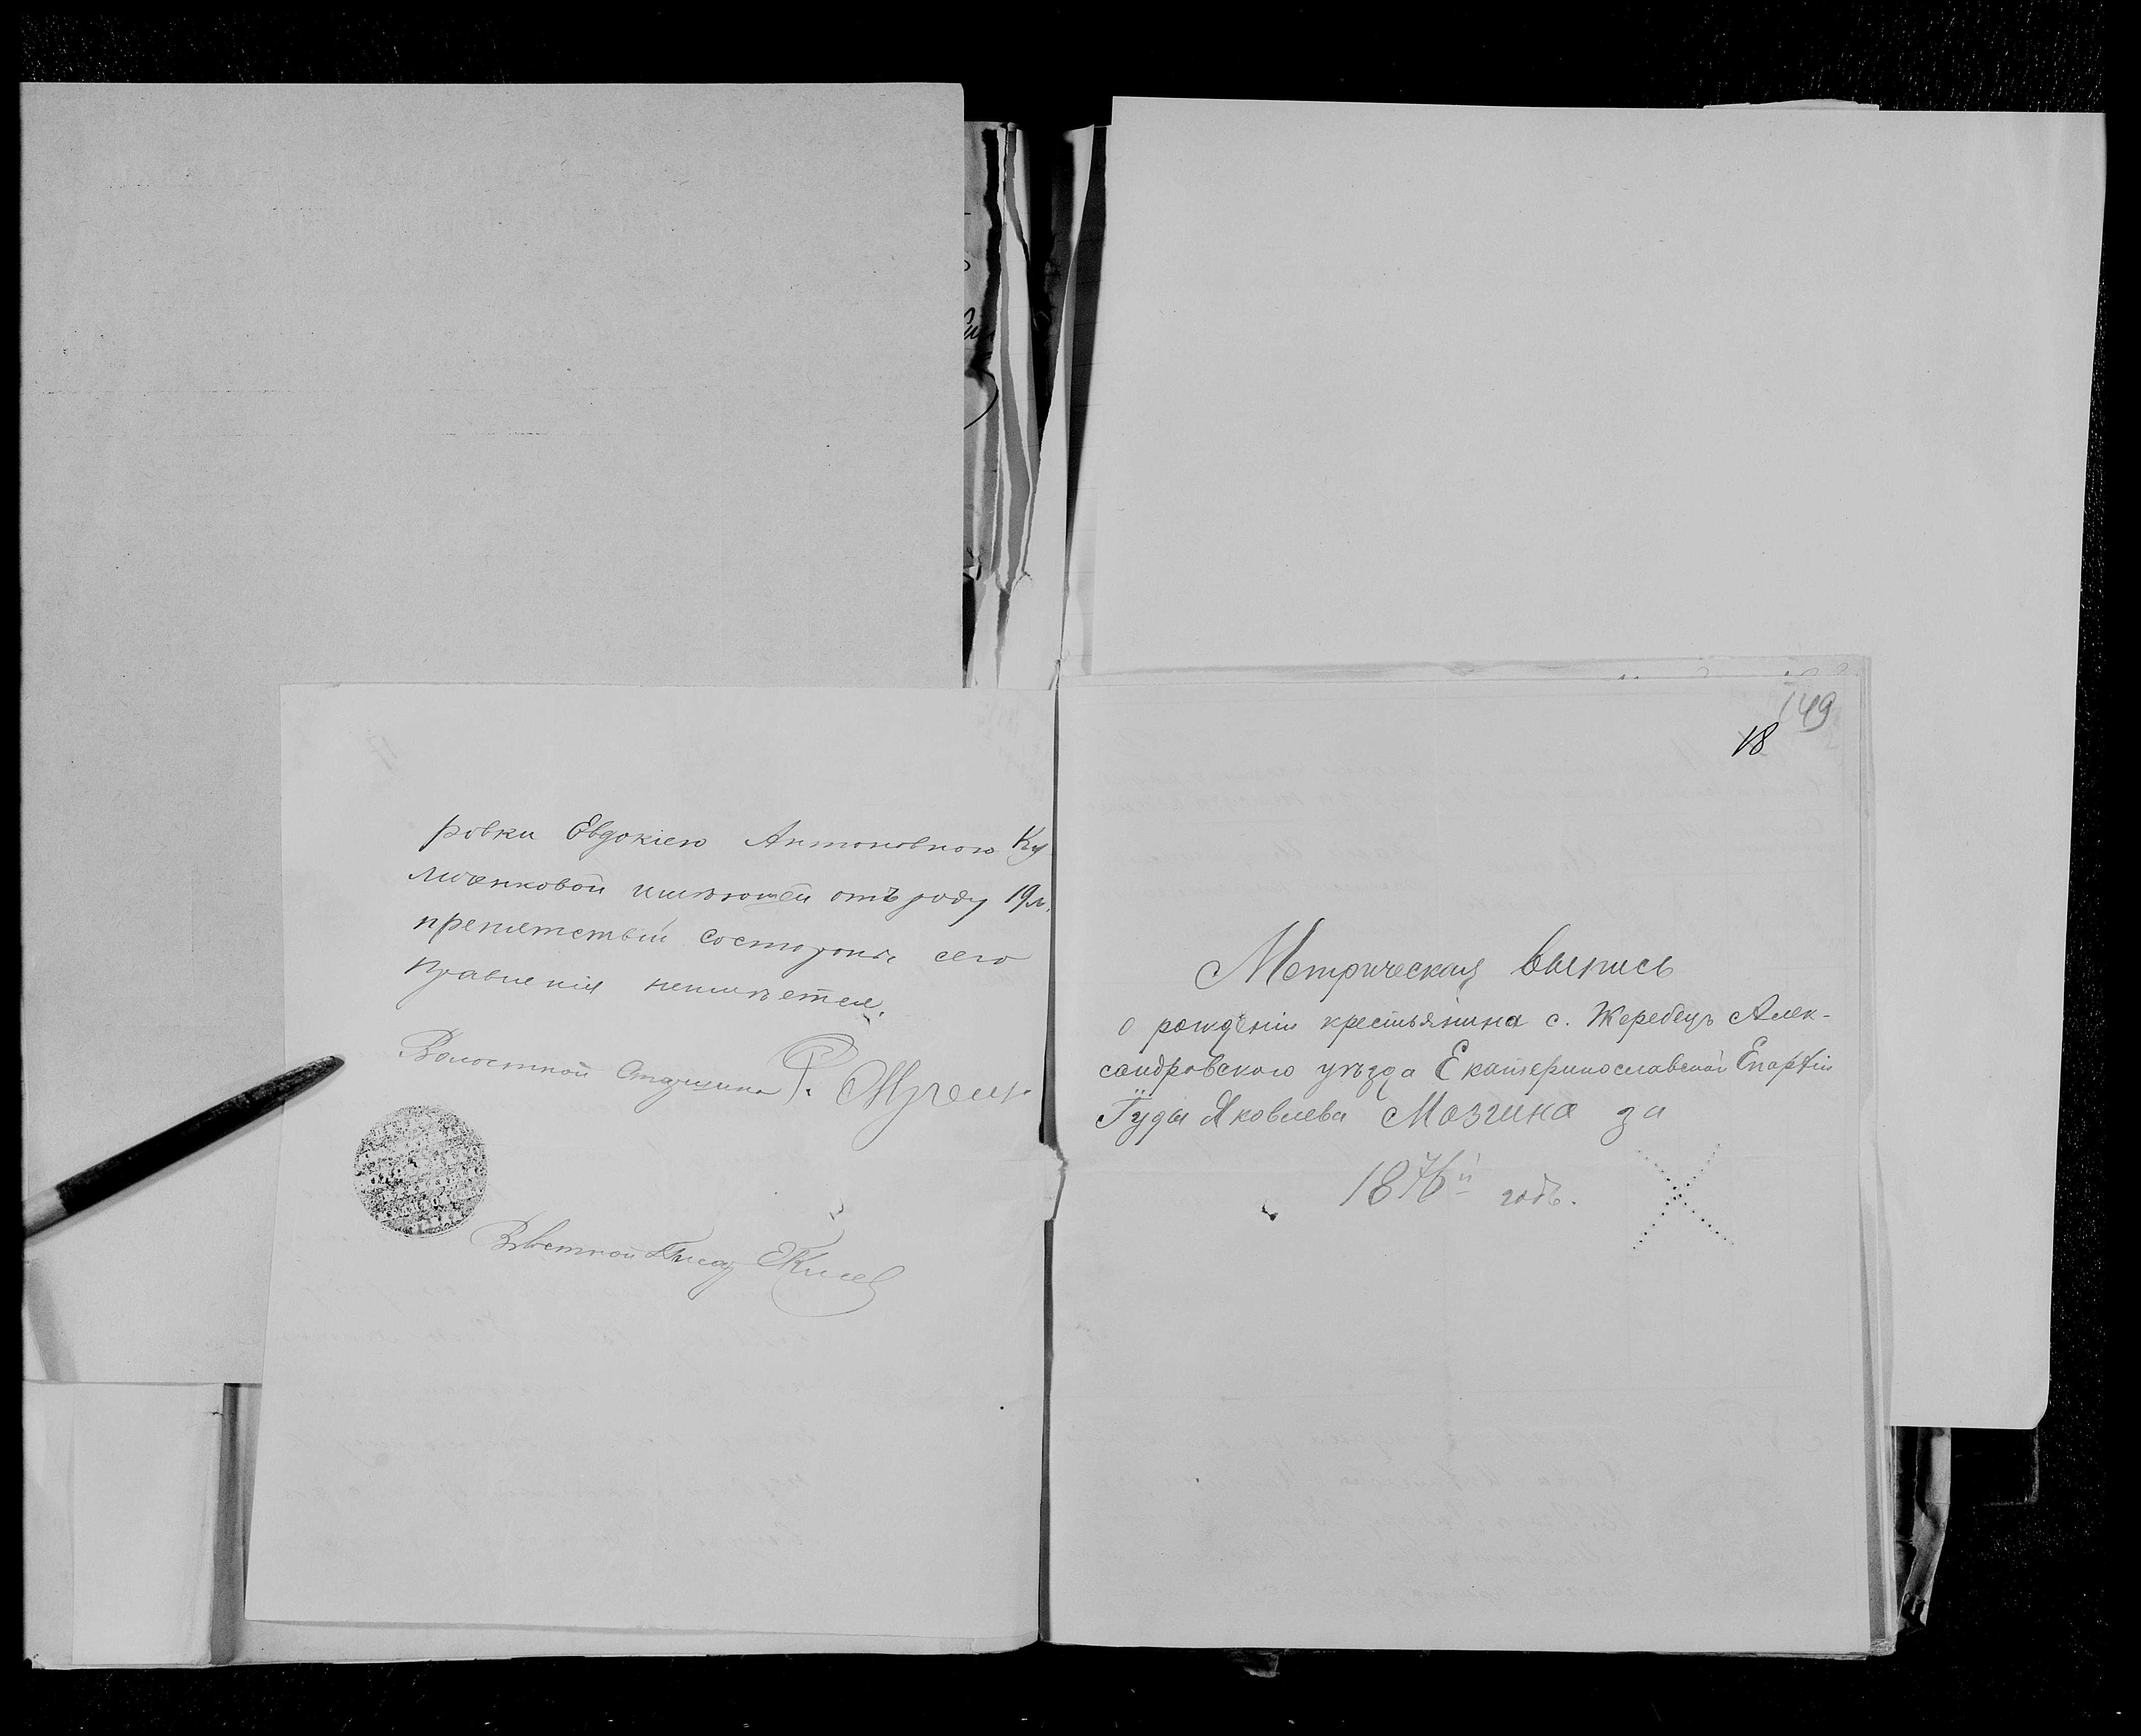 ровки Евдокіею Антоновною Ку
личенковой имѣющей отъ роду 19 л.
препятствій состороны сего
Правленія неимѣется.
Волостной Старшина Р.
Волостной Писарь
149
18
Метрическая выпись
о рожденіи крестьянина с. Жеребецъ Алек-
сандровского уѣзда Екатеринославской Епархіи
Іуды Яковлева Мозгина за
1876й годъ.